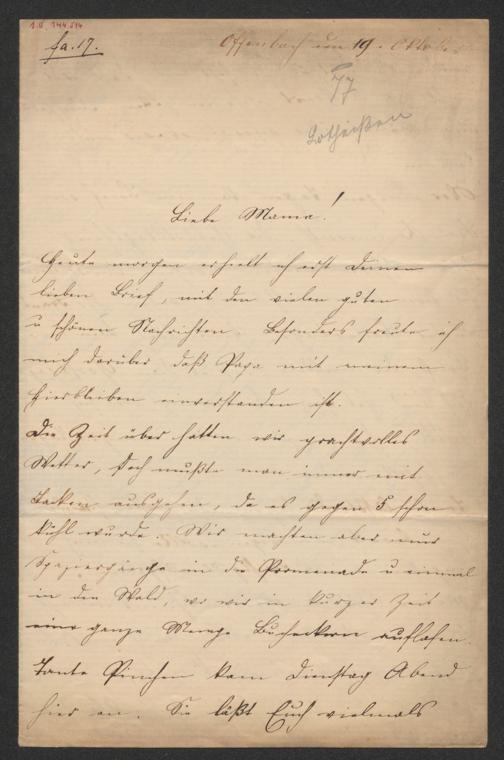 I.N. 144.514
fa. 17.
Offenbach am 19. Oktober
77
Lotheißen
Liebe Mama!
Heute morgen erhielt ich erst Deinen
lieben Brief, mit den vielen guten
u schönen Nachrichten. Besonders freute ich
mich darüber daß Papa mit meinem
Hierbleiben einverstanden ist.
Die Zeit über hatten wir prachtvolles
Wetter, doch mußte man immer mit
Jacken ausgehen, da es gegen 5 schon
kühl wurde. Wir machten aber nur
Spaziergänge in die Promenade u einmal
in den Wald, wo wir in kurzer Zeit
eine ganze Menge Bucheckern auflasen.
Tante Pinchen kam Dienstag Abend
hier an. Sie läßt Euch vielmals